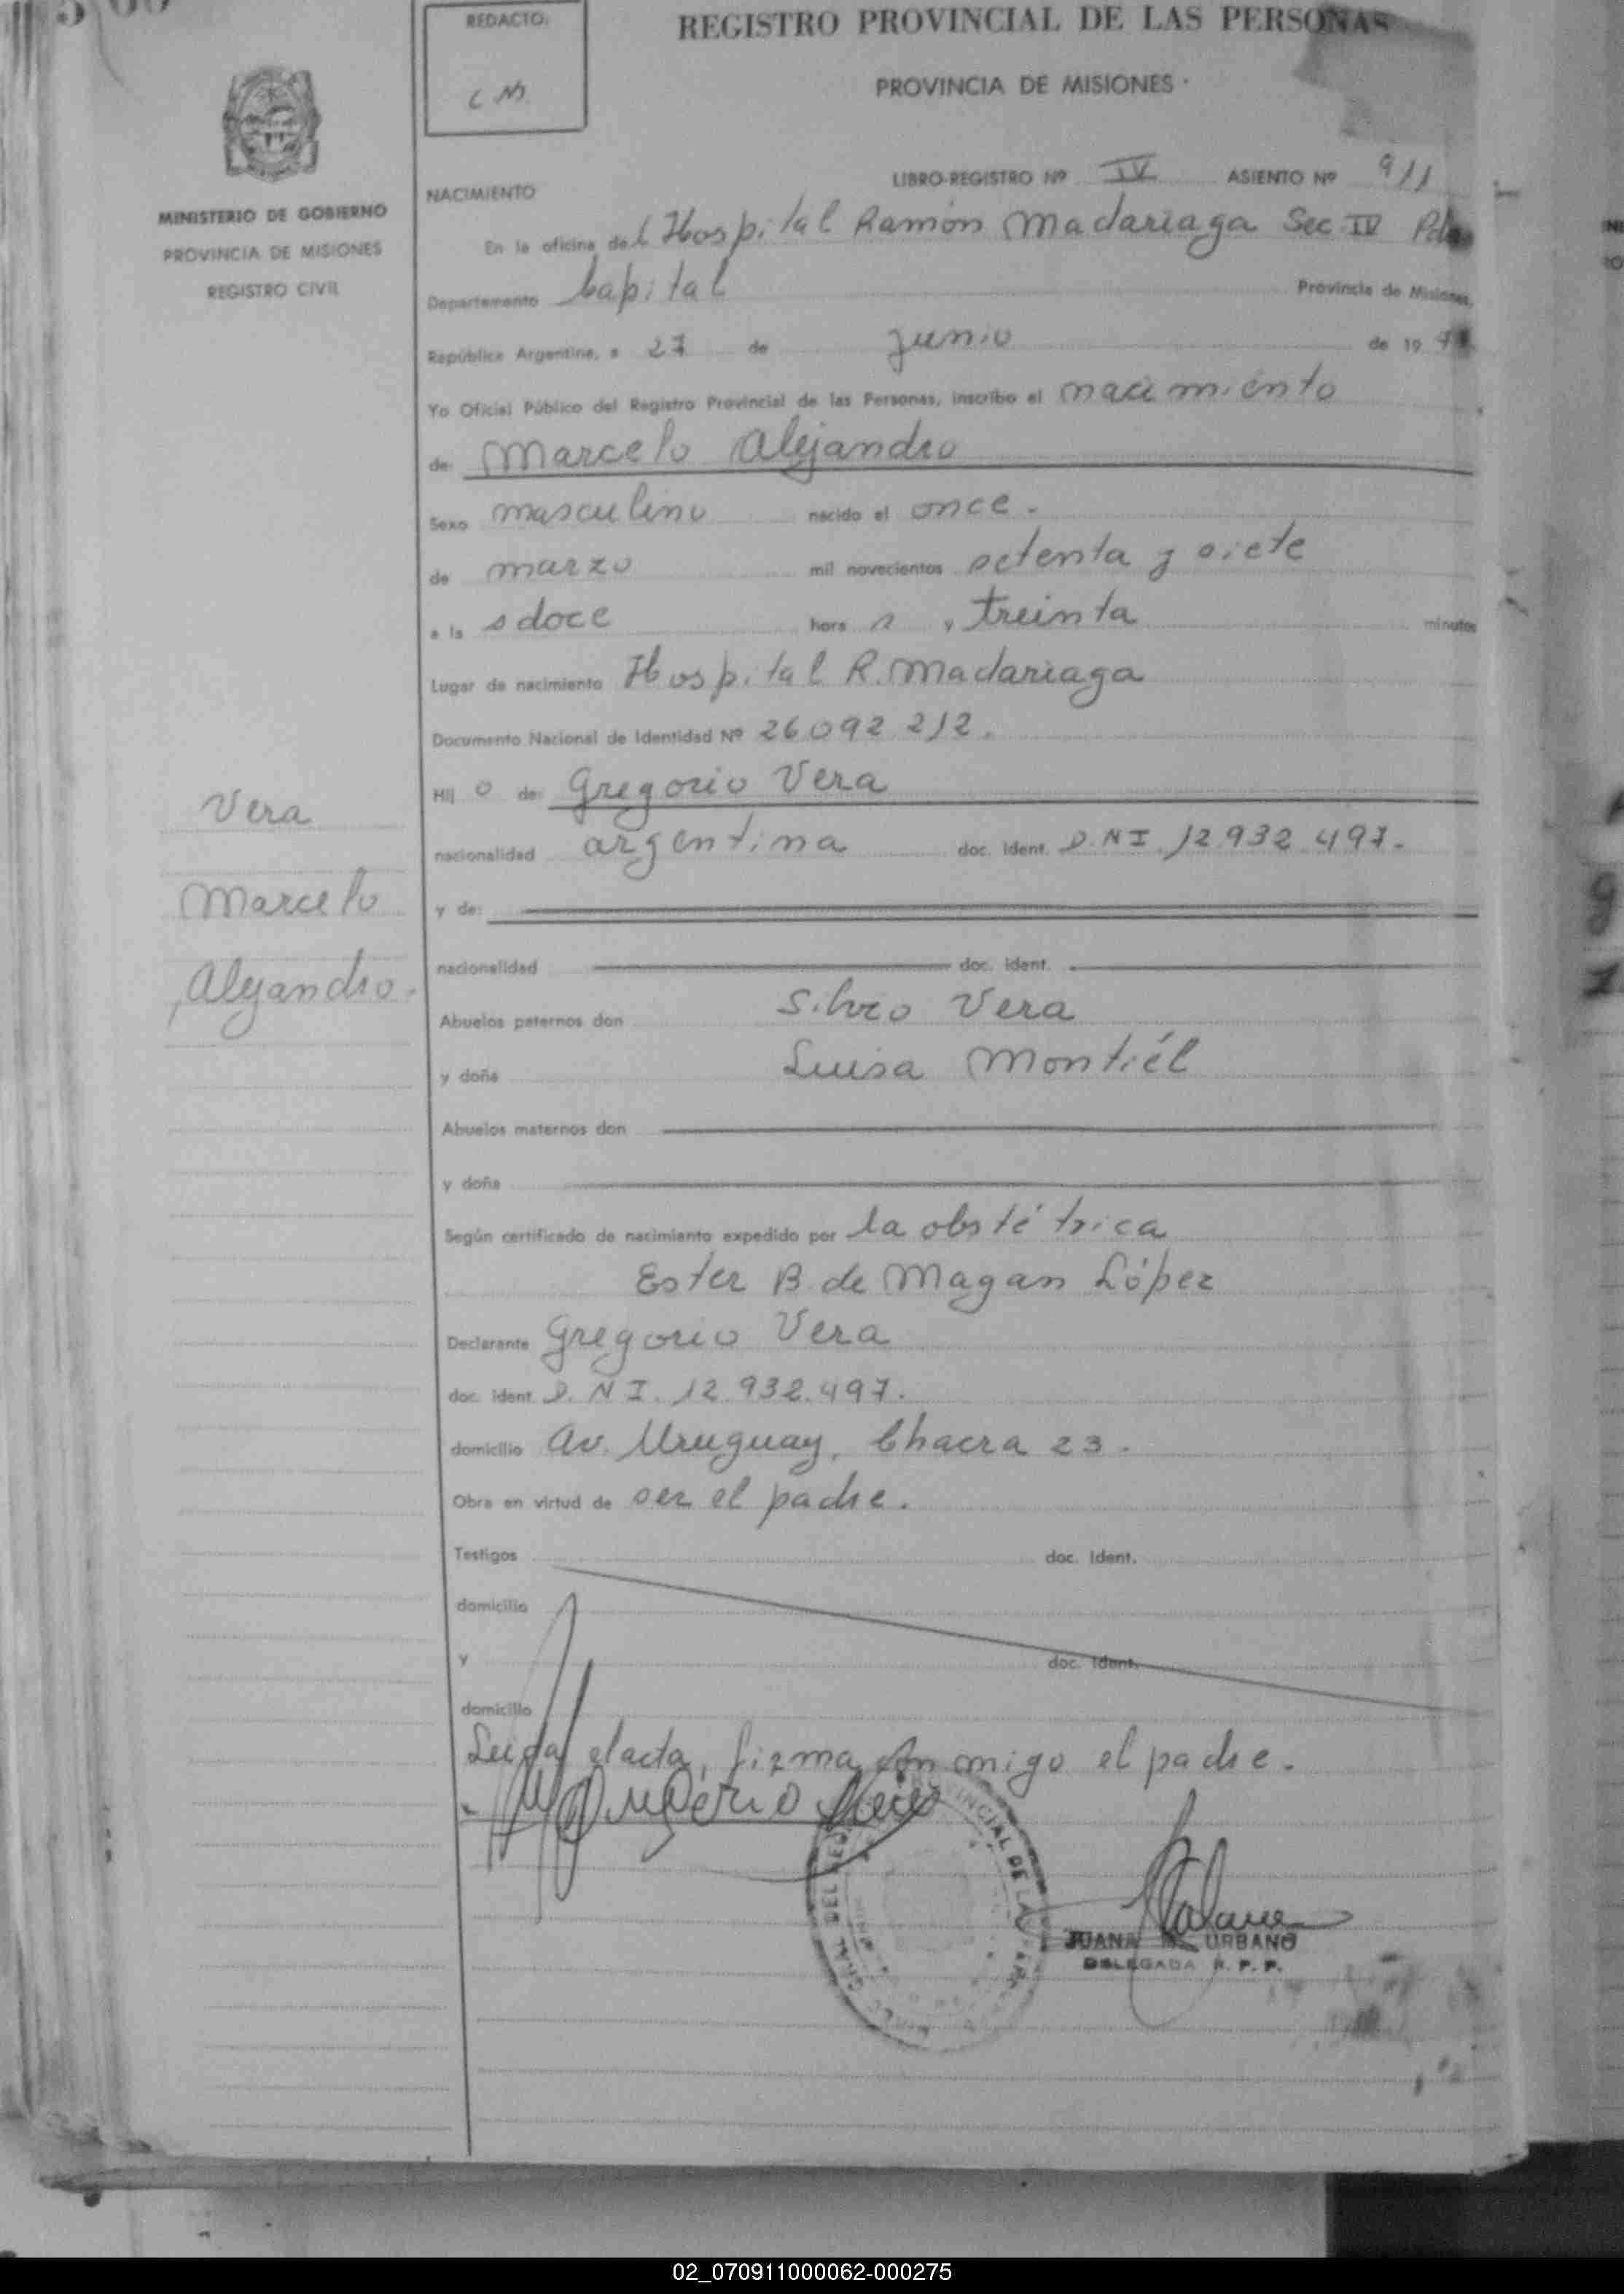 REDACTO:
C M.
REGISTRO PROVINCIAL DE LAS PERSONAS
PROVINCIA DE MISIONES
MINISTERIO DE GOBIERNO
PROVINCIA DE MISIONES
REGISTRO CIVIL
LIBRO-REGISTRO Nº IV ASIENTO Nº 911
NACIMIENTO
En la oficina del Hospital Ramón Madariaga Sec IV
Departamento Capital Provincia de Misiones,
República Argentina, a 27 de Junio de 19
Yo Oficial Público del Registro Provincial de las Personas, inscribo el nacimiento
de: Marcelo Alejandro
Sexo masculino nacido el once.
de marzo mil novecientos setenta y siete
a las doce horas y treinta minutos
Lugar de nacimiento Hospital R. Madariaga
Documento Nacional de Identidad Nº 26 092 212.
Hijo de: Gregorio Vera
nacionalidad argentina doc. ident. D.N I. 12 932 497.
y de:
nacionalidad doc. ident.
Abuelos paternos don Silvio Vera
y doña Luisa Montiél
Abuelos maternos don
y doña
Según certificado de nacimiento expedido por la obstétrica
Ester B. de Magan López
Declarante Gregorio Vera
doc. ident. D. N I. 12.932.497.
domicilio Av. Uruguay, Chacra 23.
Obra en virtud de ser el padre.
Testigos doc. ident.
domicilio
y doc. ident.
domicilio
Leida el acta, firma conmigo el padre.
JUANA URBANO
DELEGADA R. P. P.
Vera
Marcelo
Alejandro.
02_070911000062-000275